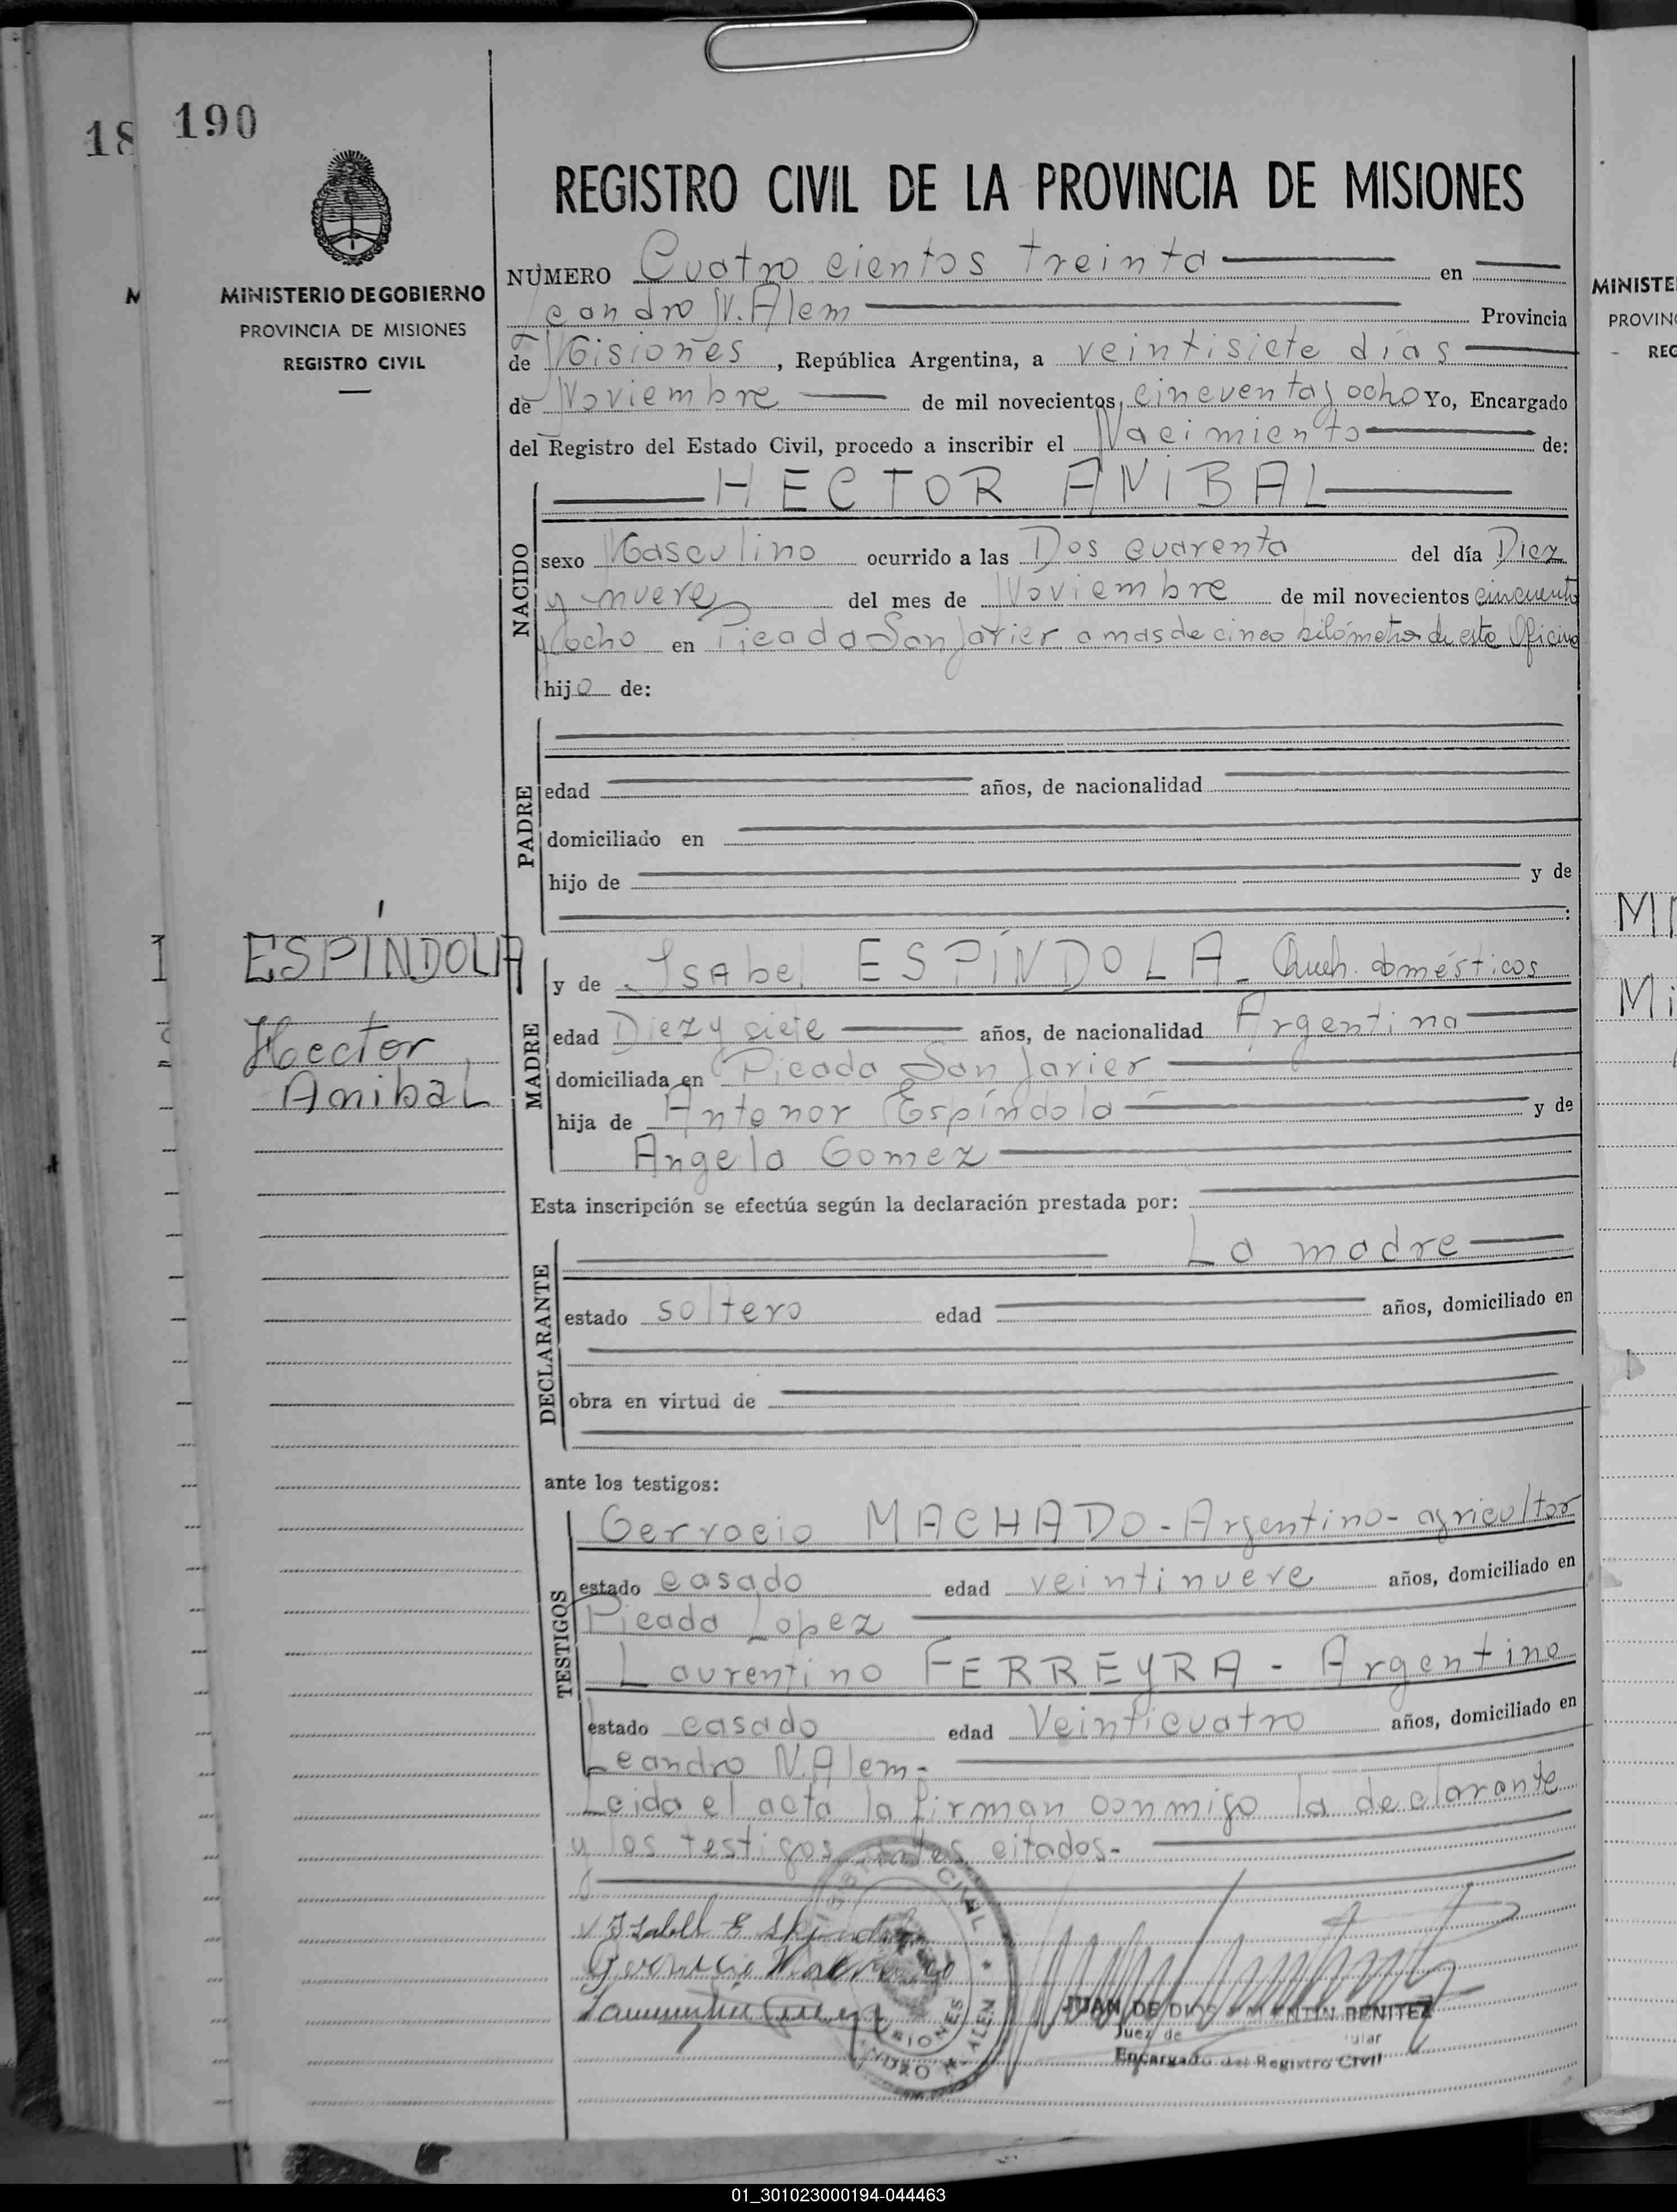 18
190
MINISTERIO DE GOBIERNO
PROVINCIA DE MISIONES
REGISTRO CIVIL
REGISTRO CIVIL DE LA PROVINCIA DE MISIONES
NUMERO Cuatro cientos treinta en
Leandro N. Alem Provincia
de Misiones, República Argentina, a veintisiete días
de Noviembre de mil novecientos, cincuenta y ocho Yo, Encargado
del Registro del Estado Civil, procedo a inscribir el Nacimiento de:
HECTOR ANIBAL
NACIDO
sexo Masculino ocurrido a las Dos cuarenta del día Diez
y nueve del mes de Noviembre de mil novecientos cincuenta
y ocho en Picada San Javier a mas de cinco kilómetros de esta Oficina
hijo de:
PADRE
edad años, de nacionalidad
domiciliado en
hijo de y de
:
ESPÍNDOLA
Hector
Anibal
MADRE
y de Isabel ESPÍNDOLA - Queh. domésticos
edad Diez y siete años, de nacionalidad Argentina
domiciliada en Picada San Javier
hija de Antenor Espíndola y de
Angela Gomez
Esta inscripción se efectúa según la declaración prestada por:
La madre
DECLARANTE
estado soltera edad años, domiciliado en
obra en virtud de
ante los testigos:
TESTIGOS
Gervacio MACHADO - Argentino - agricultor
estado casado edad veintinueve años, domiciliado en
Picada Lopez
Laurentino FERREYRA - Argentino
estado casado edad Veinticuatro años, domiciliado en
Leandro N. Alem -
Leida el acta la firman conmigo la declarante
y los testigos antes citados -
CIVIL
MISIONES
JUAN DE DIOS VALENTIN BENITEZ
Juez de
Encargado del Registro Civil
MINISTE
PROVINC
REG
01_301023000194-044463